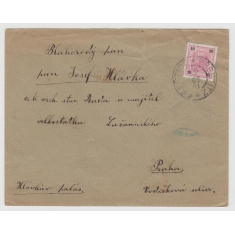 Blahorodý pan
pan Josef Hlávka
c. k. vrch. stav. Rada a majitel
velkostatku Lužanského
Praha
Vodičkova ulice.
Hlávkův palác.
10
10